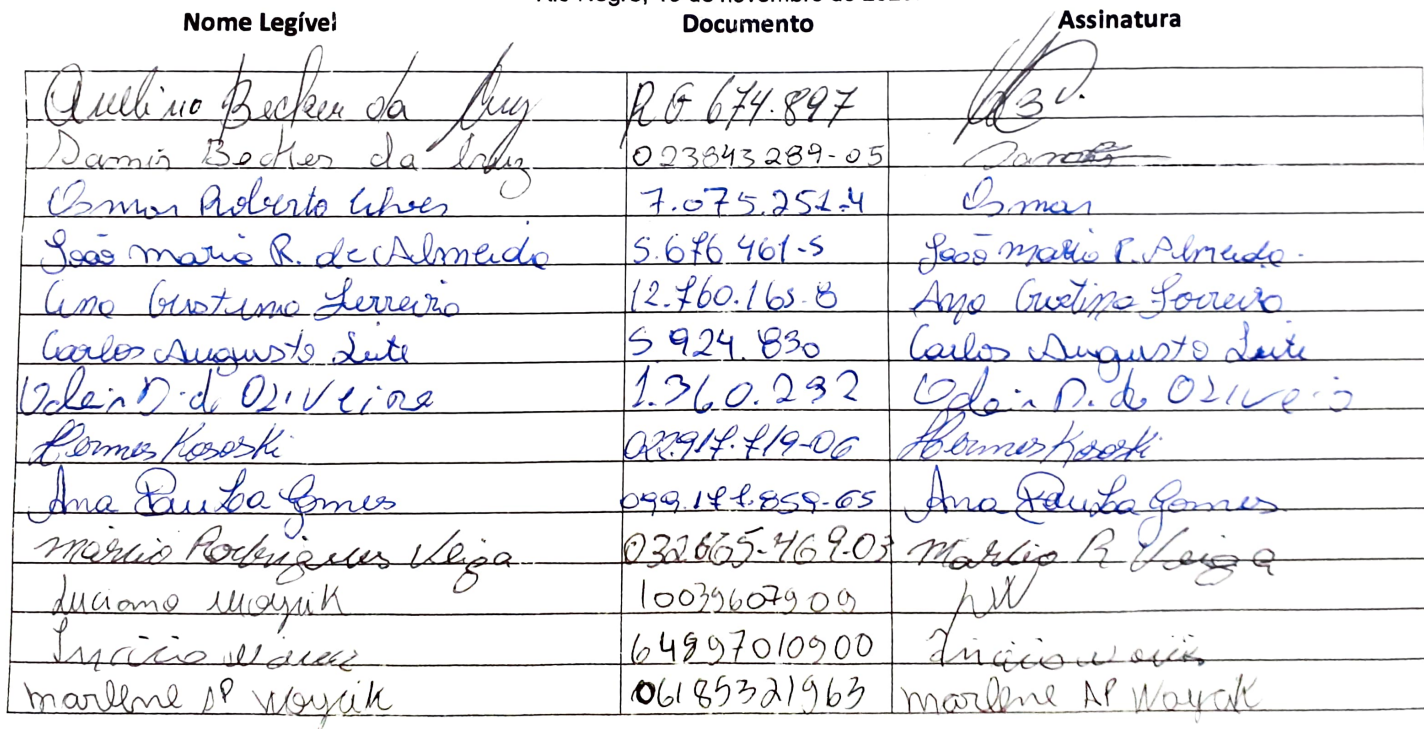 Rio Negro, 10 de novembro de 202
Nome Legível Documento Assinatura
Avelino Becker da Cruz RG 674.897
Damin Becker da Cruz 023843289-05
Osmar Roberto Alves 7.075.251-4 Osmar
João maria R. de Almeida 5.676.461-5 João maria R. Almeida.
Ana Cristina Ferreira 12.760.165-8 Ana Cristina Ferreira
Carlos Augusto Leite 5 924.830 Carlos Augusto Leite
Odair D. de Oliveira 1.360.232 Odair D. de Oliveira
Hermes Kososki 022.917.719-06 Hermes Kososki
Ana Paula Gomes 099.177.859-65 Ana Paula Gomes
márcio Rodrigues Veiga 032665-469-03 Marcio R Veiga
Luciano Woycik 10039607909
Inácio 64897010900 Inácio
marlene AP Woycik 06185321963 marlene AP Woycik